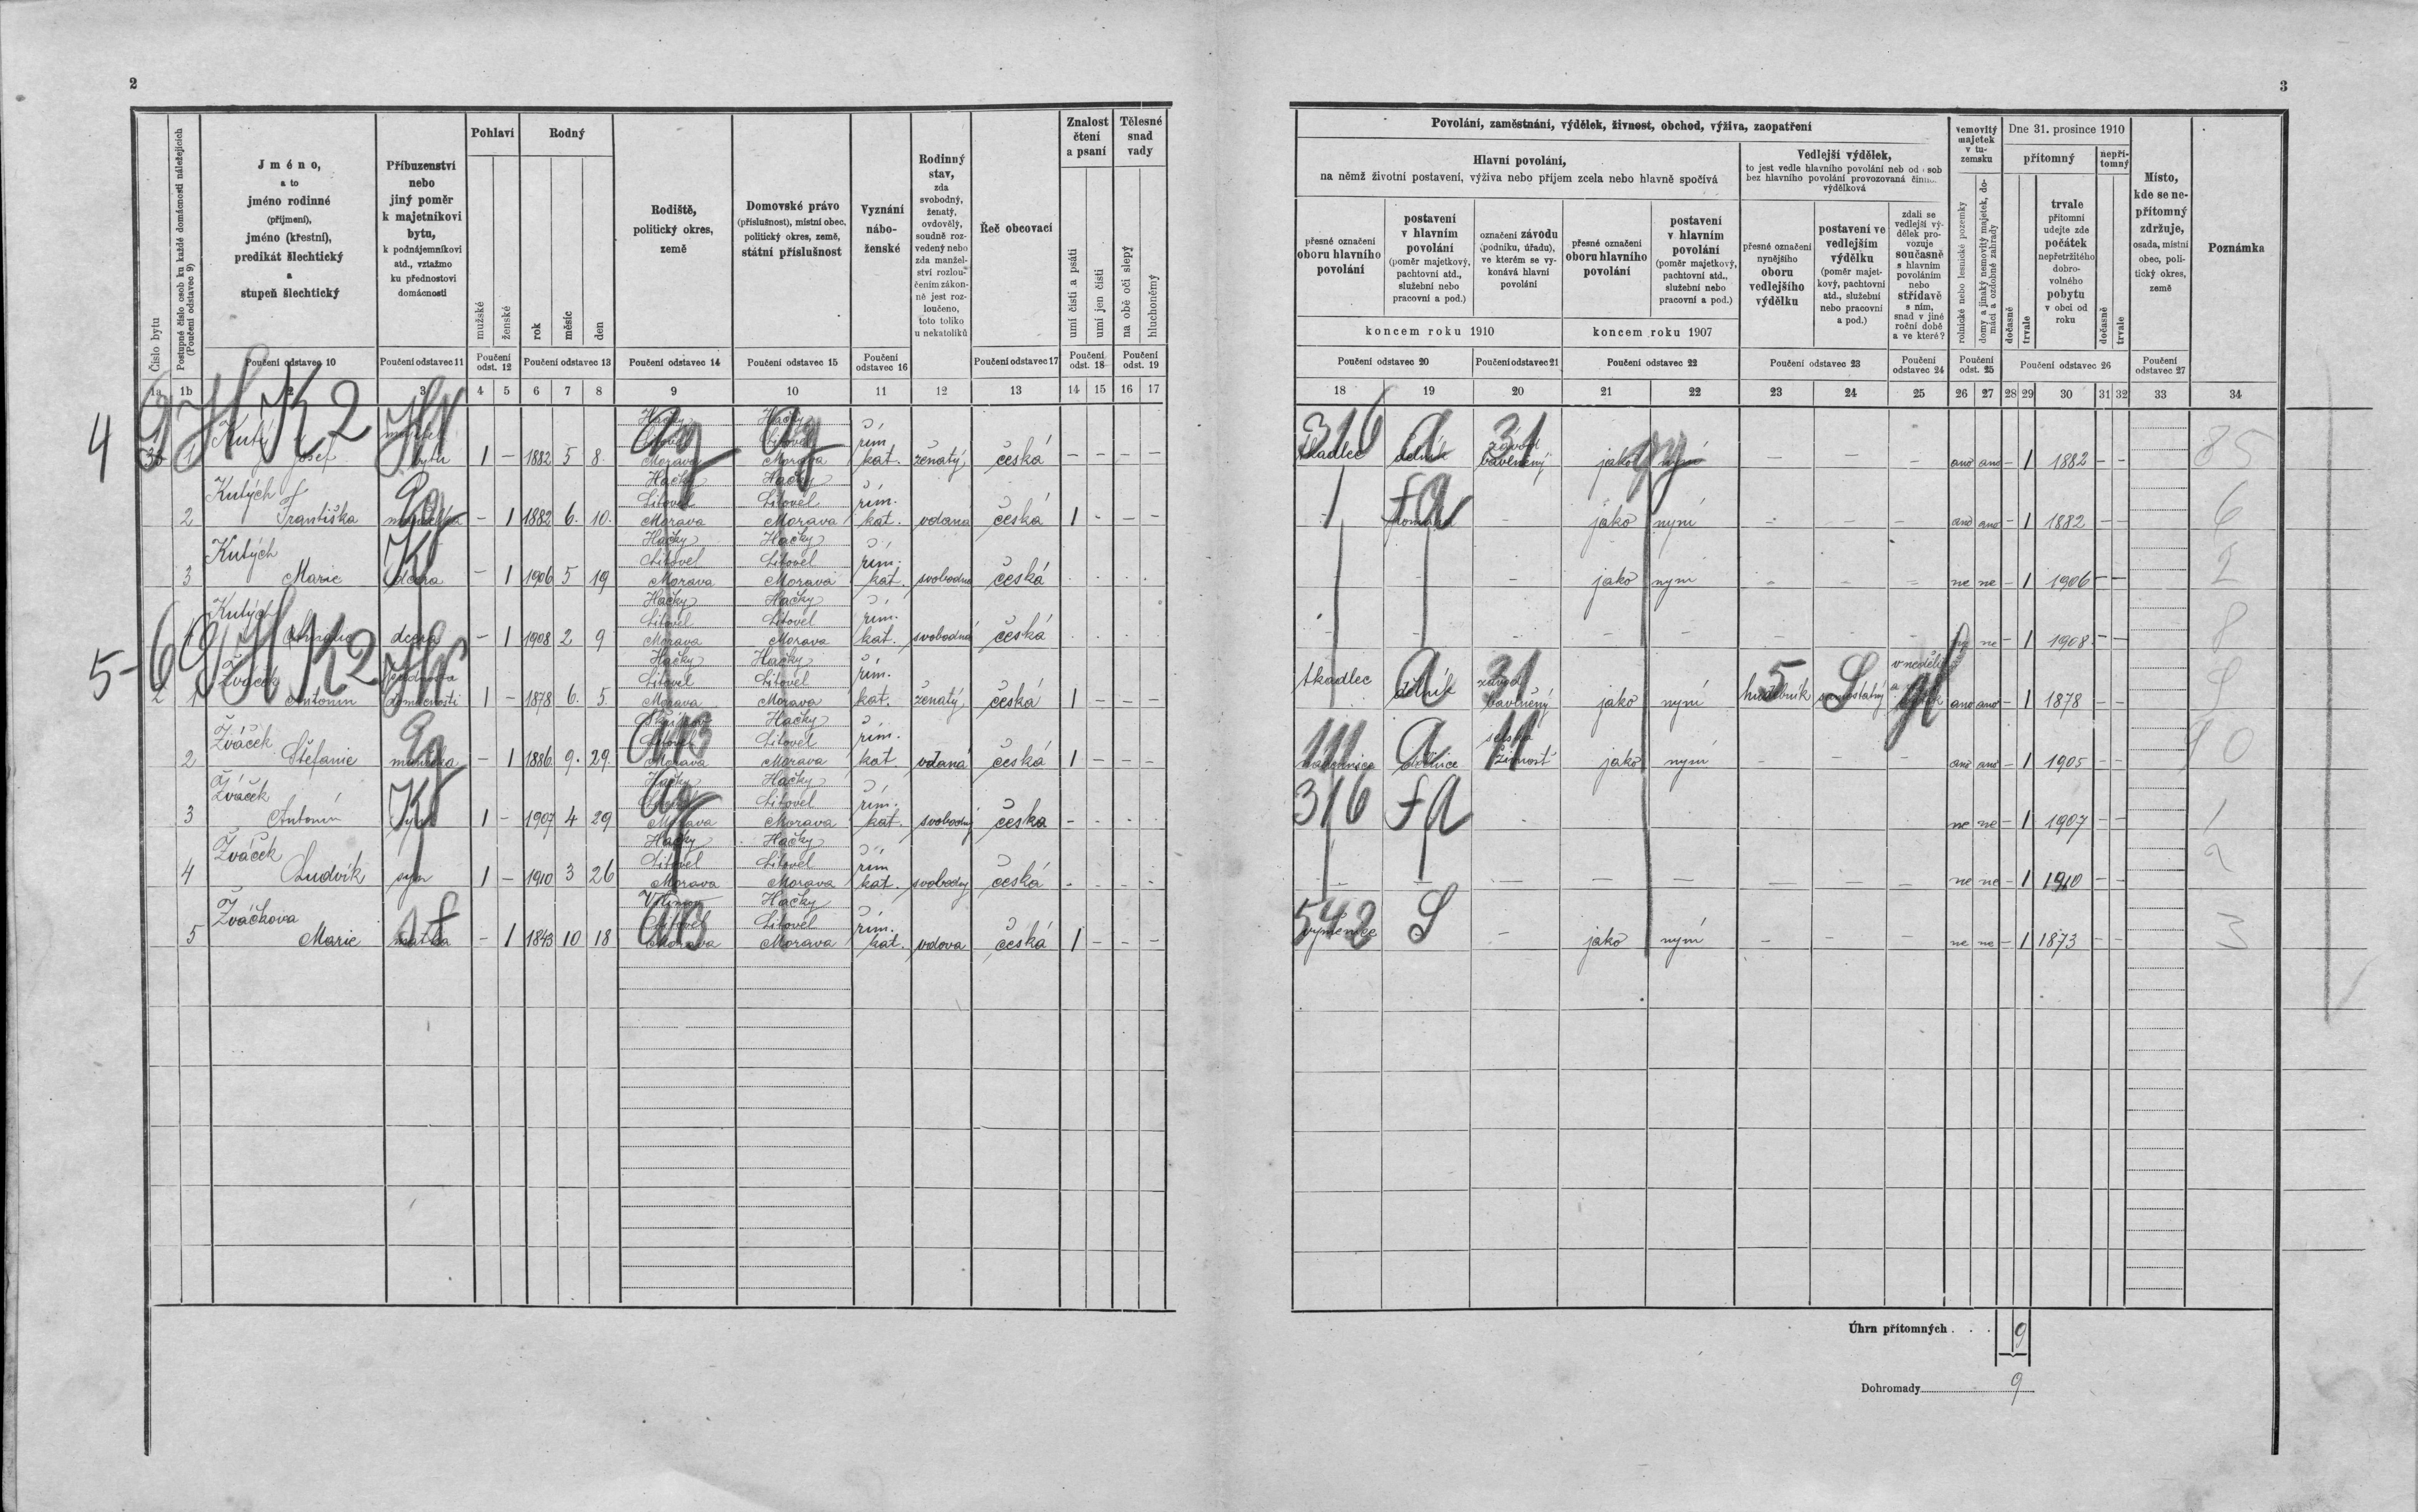 2
3
Číslo bytu
Postupné číslo osob ku každé domácnosti náležejících (Poučení odstavec 9)
Jméno,
a to
jméno rodinné
(příjmení),
jméno (křestní),
predikát šlechtický
a
stupeň šlechtický
Příbuzenství
nebo
jiný poměr
k majetníkovi
bytu,
k podnájemníkovi
atd., vztažmo
ku přednostovi
domácnosti
Pohlaví
mužské
ženské
Rodný
rok
měsíc
den
Rodiště,
politický okres,
země
Domovské právo
(příslušnost), místní obec,
politický okres, země,
státní příslušnost
Vyznání
nábo-
ženské
Rodinný
stav,
zda
svobodný,
ženatý,
ovdovělý,
soudně roz-
vedený nebo
zda manžel-
ství rozlou-
čením zákon-
ně jest roz-
loučeno,
toto toliko
u nekatolíků
Řeč obcovací
Znalost
čtení
a psaní
umí čísti a psáti
umí jen čísti
Tělesné
snad
vady
na obě oči slepý
hluchoněmý
Poučení odstavec 10
Poučení odstavec 11
Poučení odst. 12
Poučení odstavec 13
Poučení odstavec 14
Poučení odstavec 15
Poučení odstavec 16
Poučení odstavec 17
Poučení odst. 18
Poučení odst. 19
1a 1b 2 3 4 5 6 7 8 9 10 11 12 13 14 15 16 17
Povolání, zaměstnání, výdělek, živnost, obchod, výživa, zaopatření
Hlavní povolání,
na němž životní postavení, výživa nebo příjem zcela nebo hlavně spočívá
přesné označení
oboru hlavního
povolání
postavení
v hlavním
povolání
(poměr majetkový,
pachtovní atd.,
služební nebo
pracovní a pod.)
označení závodu
(podniku, úřadu),
ve kterém se vy-
konává hlavní
povolání
přesné označení
oboru hlavního
povolání
postavení
v hlavním
povolání
(poměr majetkový,
pachtovní atd.,
služební nebo
pracovní a pod.)
koncem roku 1910
koncem roku 1907
Vedlejší výdělek,
to jest vedle hlavního povolání neb od sob
bez hlavního povolání provozovaná činn.
výdělková
přesné označení
nynějšího
oboru
vedlejšího
výdělku
postavení ve
vedlejším
výdělku
(poměr majet-
kový, pachtovní
atd., služební
nebo pracovní
a pod.)
zdali se
vedlejší vý-
dělek pro-
vozuje
současně
s hlavním
povoláním
nebo
střídavě
s ním,
snad v jiné
roční době
a ve které?
nemovitý
majetek
v tu-
zemsku
rolnické nebo lesnické pozemky
domy a jinaký nemovitý majetek, domácí a ozdobné zahrady
Dne 31. prosince 1910
přítomný
nepří-
tomný
dočasně
trvale
trvale
přítomní
udejte zde
počátek
nepřetržitého
dobro-
volného
pobytu
v obci od
roku
dočasně
trvale
Místo,
kde se ne-
přítomný
zdržuje,
osada, místní
obec, poli-
tický okres,
země
Poznámka
Poučení odstavec 20
Poučení odstavec 21
Poučení odstavec 22
Poučení odstavec 23
Poučení odstavec 24
Poučení odst. 25
Poučení odstavec 26
Poučení odstavec 27
18 19 20 21 22 23 24 25 26 27 28 29 30 31 32 33 34
4
K2
1 Kutý Josef bytu 1 - 1882 5 8 Hačky Litovel Morava Hačky Litovel Morava řím. kat. ženatý česká - - - -
316 31
tkadlec dělník závod bavlněný jako nyní - - ano ano - 1 1882 - - 85
2 Kutých Františka manželka - 1 1882 6. 10. Hačky Litovel Morava Hačky Litovel Morava řím. kat. vdaná česká 1 - - -
- jako nyní - - - ano ano - 1 1882 - - 6
3 Kutých Marie dcera - 1 1906 5 19 Hačky Litovel Morava Hačky Litovel Morava řím. kat. svobodná česká
- jako nyní - - - ne ne - 1 1906 - - 2
Kutých dcera - 1 1908 2 9 Hačky Litovel Morava Hačky Litovel Morava řím. kat. svobodná česká
ne - 1 1908 - - 8
5-6
K2
2 1 Žváček Antonín domácnosti 1 - 1878 6. 5. Hačky Litovel Morava Hačky Litovel Morava řím. kat. ženatý česká 1 - - -
tkadlec dělník 31 závod bavlněný jako nyní 5 hudebník samostatný v neděli ano ano - 1 1878 - -
2 Žváček Štefanie manželka - 1 1886 9. 29. Litovel Morava Hačky Litovel Morava řím. kat. vdaná česká 1 - - -
111 11 živnost jako nyní - - - ano ano - 1 1905 - - 10
3 Žváček Antonín syn 1 - 1907 4 29 Hačky Litovel Morava Hačky Litovel Morava řím. kat. svobodný česká - -
316 ne ne - 1 1907 - - 1
4 Žváček Ludvík syn 1 - 1910 3 26 Hačky Litovel Morava Hačky Litovel Morava řím. kat. svobodný česká - - - -
- - - - - - - - ne ne - 1 1910 - - 2
5 Žváčkova Marie matka - 1 1843 10 18 Litovel Morava Hačky Litovel Morava řím. kat. vdova česká 1 - - -
542 - jako nyní - - - ne ne - 1 1873 - - 3
Úhrn přítomných . . . 9
Dohromady 9